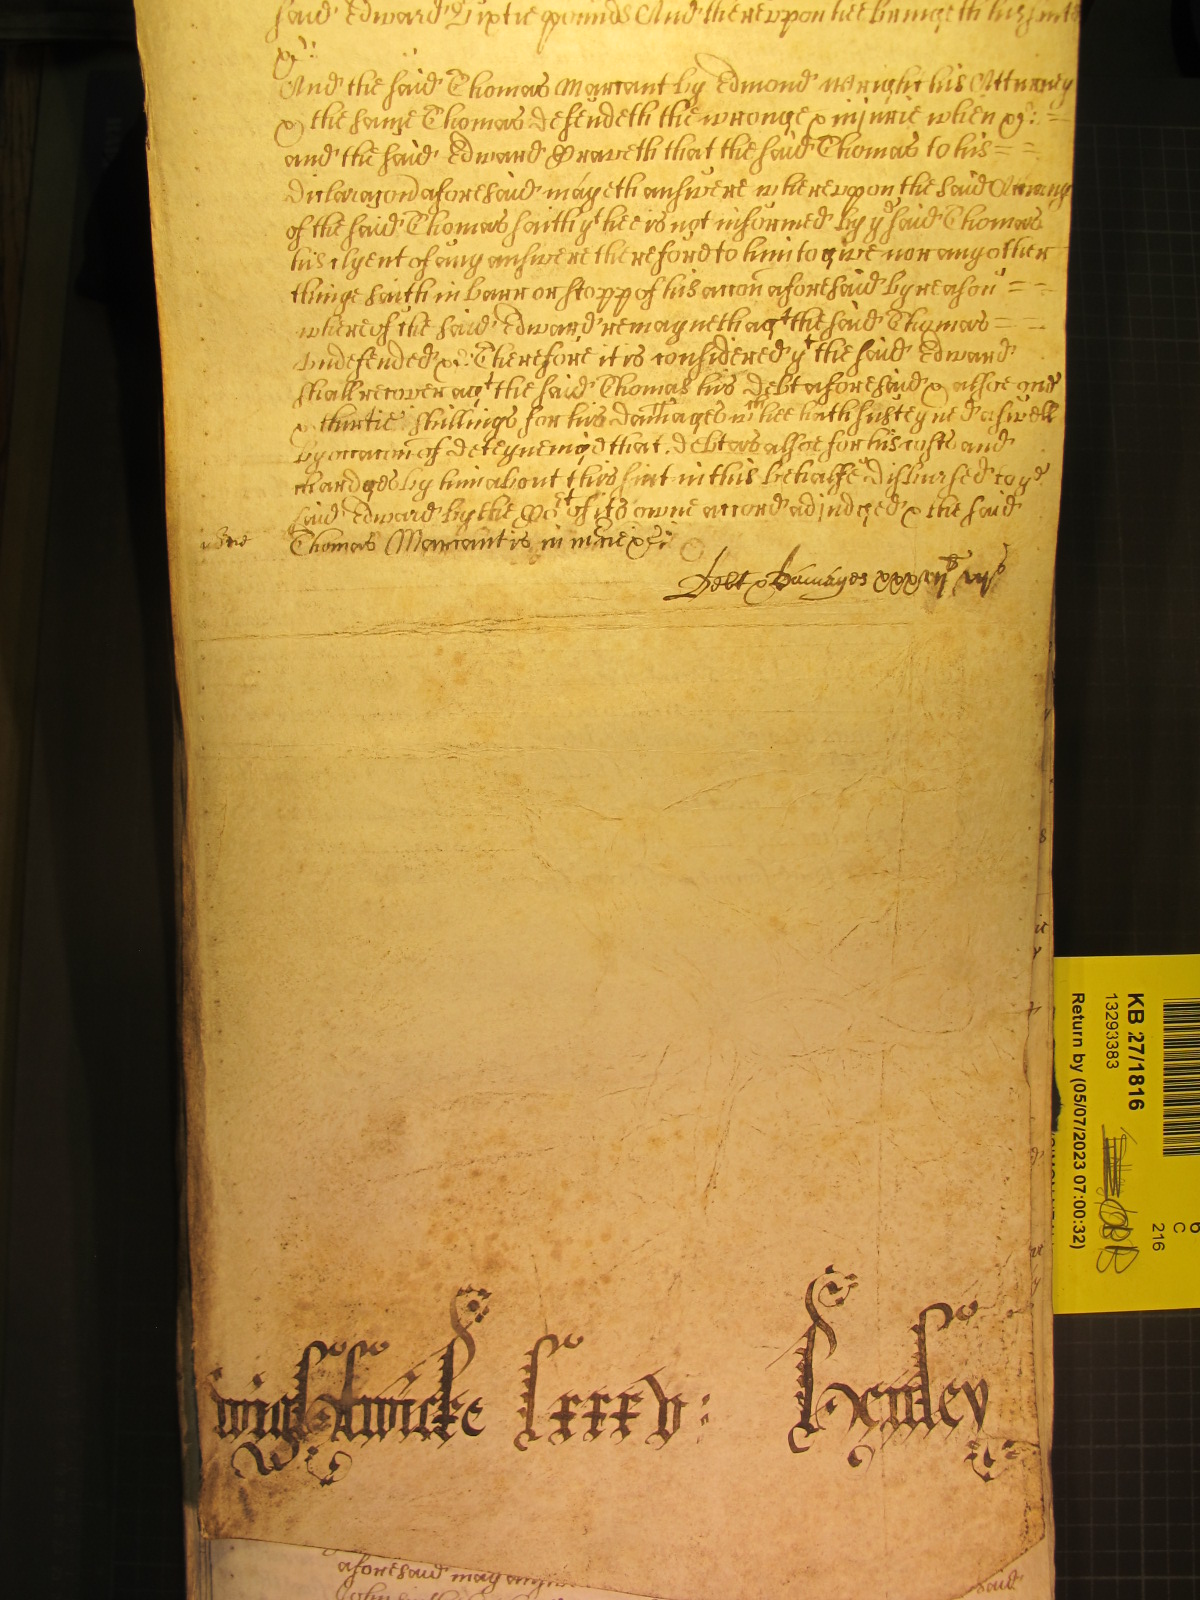 said Edward Fiftie pounds And thereuppon hee bringeth his suite
&c:
And the said Thomas Marcant by Edmond Wright his Atturney
& the same Thomas defendeth the wronge & injurie when &c: =
and the said Edward Prayeth that the said Thomas to his = =
Declaracon aforesaid may answere whereuppon the said Atturney
of the said Thomas saith yt hee is not informed by ye said Thomas
his Clyent of any answere therefore to him to give nor any other
thinge saith in barr or stopp of his accon aforesaid by reason = =
whereof the said Edward remayneth agt the said Thomas = =
Undefended &c: Therefore it is considered yt the said Edward
shall recover agt the said Thomas his Debt aforesaid & alsoe one
& thirtie shillings for his damages wch hee hath susteyned aswell
by occacon of deteyneing that debt as alsoe for his costs and
chardges by him about this suit in this behalfe disbursed to ye
said Edward by the Cort of its owne accord adjudged & the said
Thomas Marcant is in mcie &c:
Debt & Damages
Wightwicke Lxxxv: Henley
aforesaid may
said
KB 27/1816
13293383
Return by (05/07/2023 07:00:32)
216
C
6